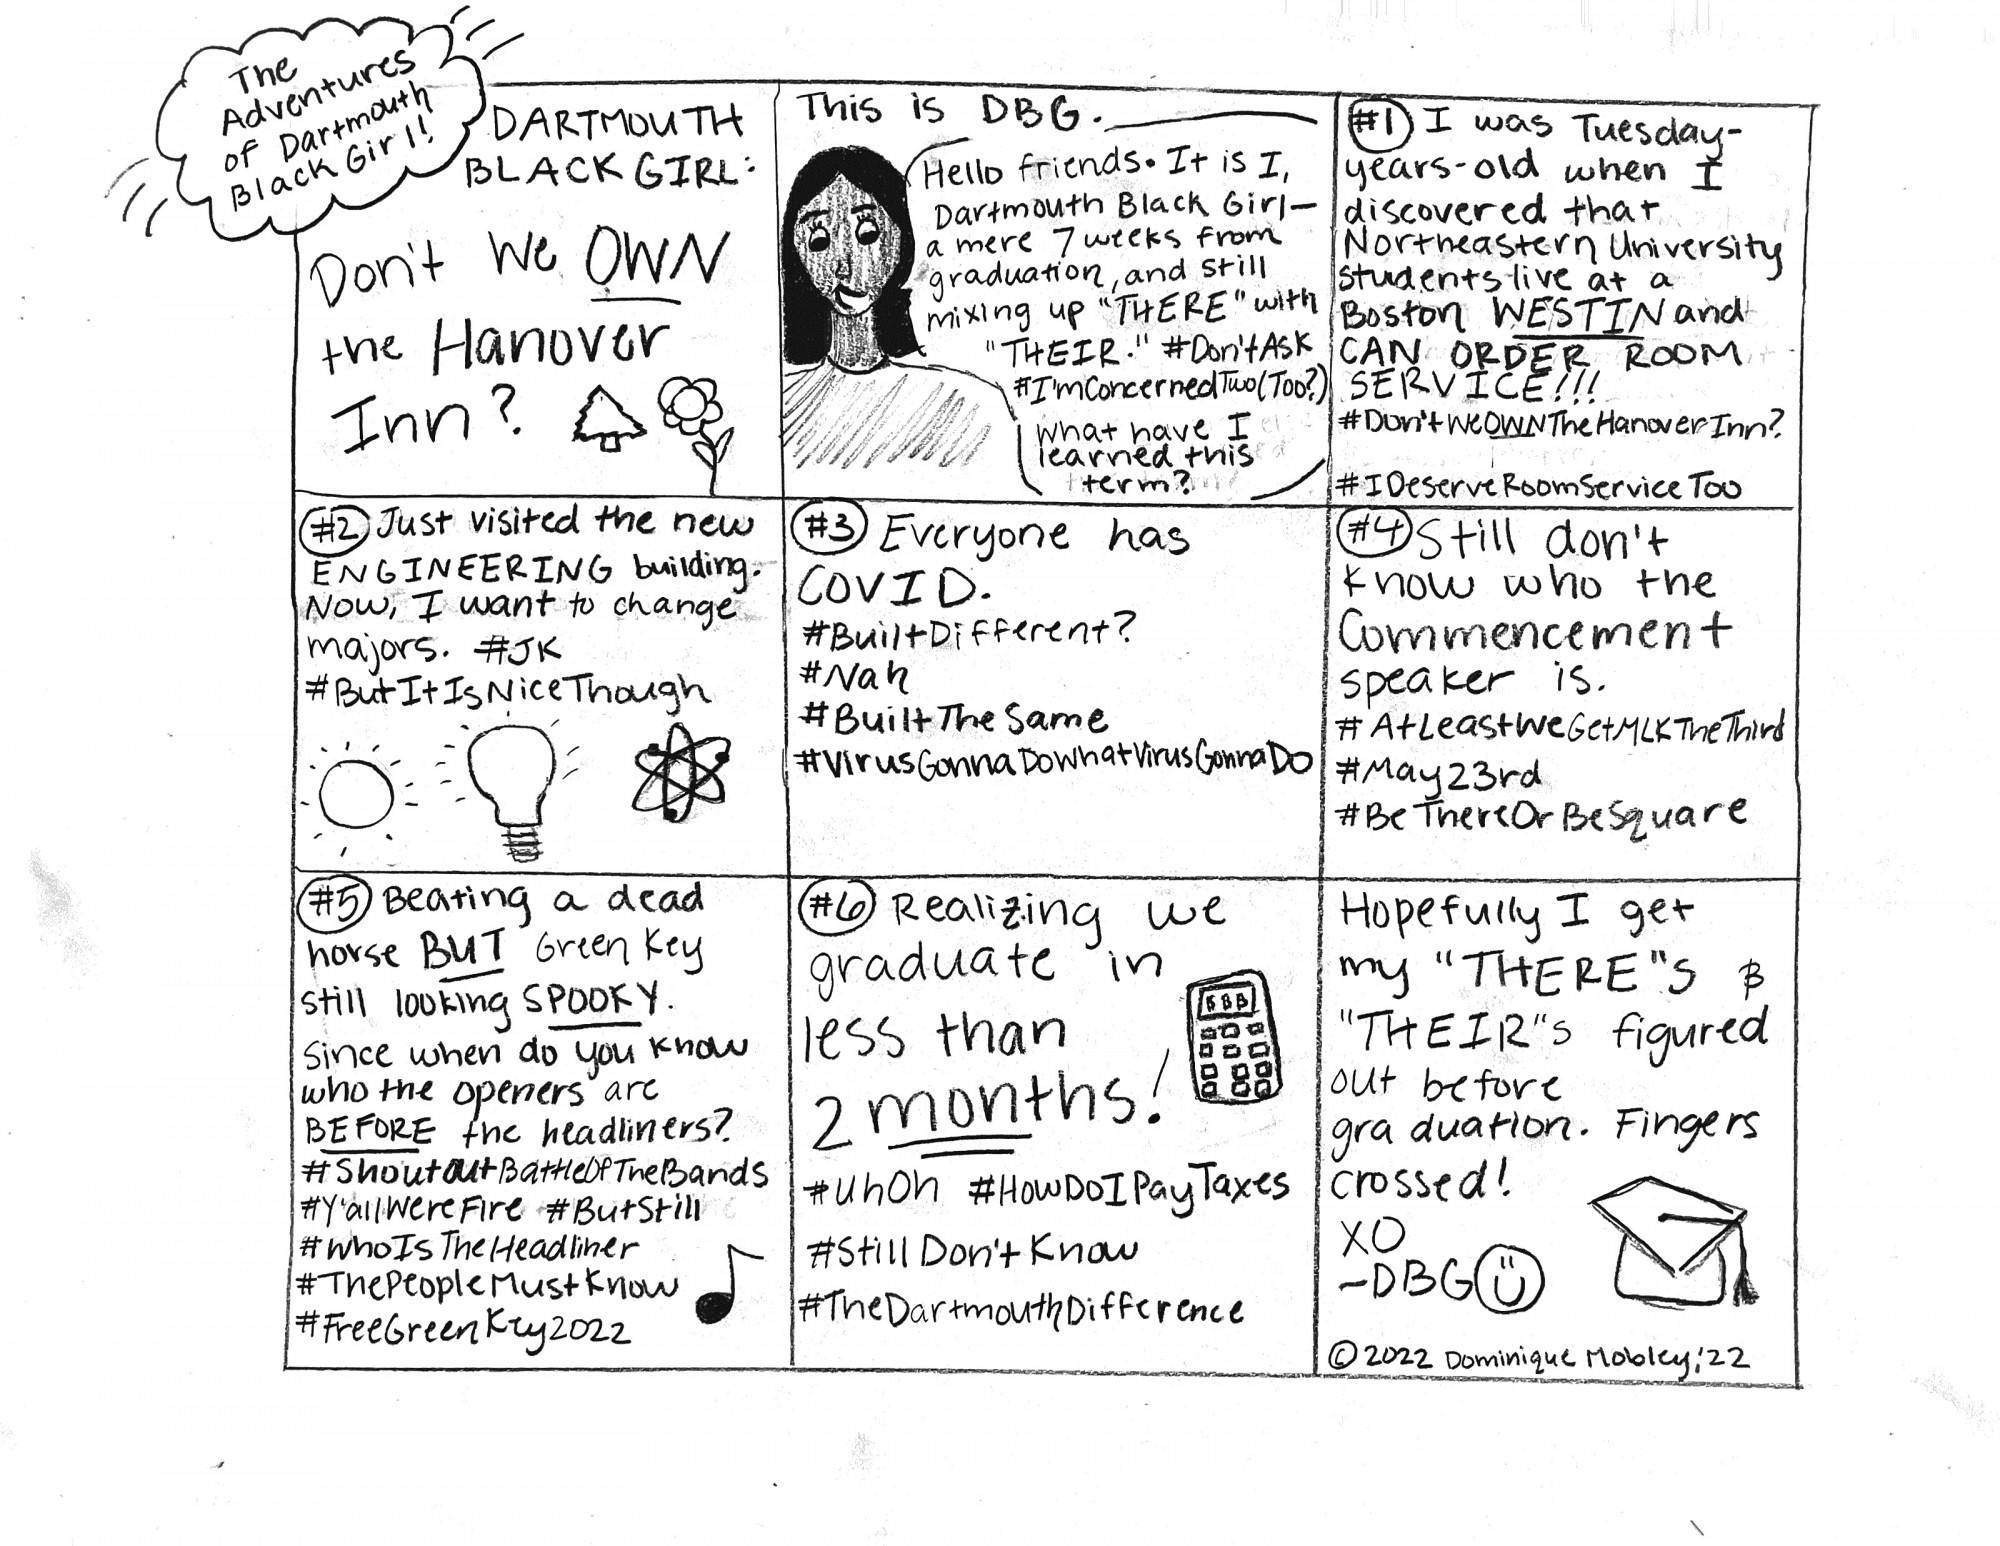 The
Adventures
of Dartmouth
Black Girl!
DARTMOUTH
BLACK GIRL:
Don't We OWN
the Hanover
Inn?
This is DBG.
Hello friends. It is I,
Dartmouth Black Girl—
a mere 7 weeks from
graduation, and still
mixing up "THERE" with
"THEIR." #Don'tAsk
#I'mConcernedTwo(Too?)
What have I
learned this
term?
#1 I was Tuesday-
years-old when I
discovered that
Northeastern University
students live at a
Boston WESTIN and
CAN ORDER ROOM
SERVICE!!!
#Don'tWeOWNTheHanoverInn?
#IDeserveRoomServiceToo
#2 Just visited the new
ENGINEERING building.
Now, I want to change
majors. #JK
#ButItIsNiceThough
#3 Everyone has
COVID.
#BuiltDifferent?
#Nah
#BuiltTheSame
#VirusGonnaDoWhatVirusGonnaDo
#4 Still don't
know who the
Commencement
speaker is.
#AtLeastWeGetMLKTheThird
#May23rd
#BeThereOrBeSquare
#5 Beating a dead
horse BUT Green Key
still looking SPOOKY.
Since when do you know
who the openers are
BEFORE the headliners?
#ShoutoutBattleOfTheBands
#Y'allWereFire #ButStill
#WhoIsTheHeadliner
#ThePeopleMustKnow
#FreeGreenKey2022
#6 Realizing we
graduate in
less than
2 months!
#UhOh #HowDoIPayTaxes
#StillDon'tKnow
#TheDartmouthDifference
Hopefully I get
my "THERE"s &
"THEIR"s figured
out before
graduation. Fingers
crossed!
XO
-DBG
© 2022 Dominique Mobley, '22